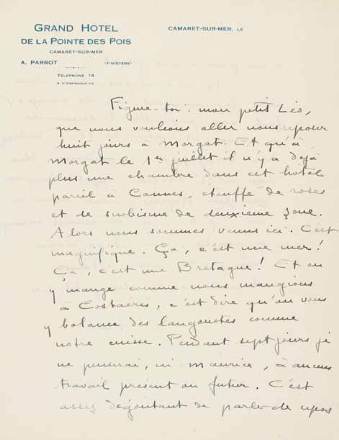 GRAND HOTEL
DE LA POINTE DES POIS
CAMARET-SUR-MER
A. PARROT (FINISTÈRE)
TÉLÉPHONE 14
CAMARET-SUR-MER, LE
Figure-toi, mon petit Léo,
que nous voulions aller nous reposer
huit jours à Morgat. Et qu'à
Morgat le 1er juillet il n'y a déjà
plus une chambre dans cet hôtel
pareil à Cannes, chauffé de roses
et de snobisme de deuxième zone.
Alors nous sommes venus ici. C'est
magnifique. Ça, c'est une mer!
Ça, c'est une Bretagne! Et on
y mange comme nous mangions
à Costaeres, c'est dire qu'on vous
y balance des langoustes comme
notre cuisse. Pendant sept jours je
ne penserai, ni Maurice, à aucun
travail présent ou futur. C'est
assez dégoûtant de parler de repos